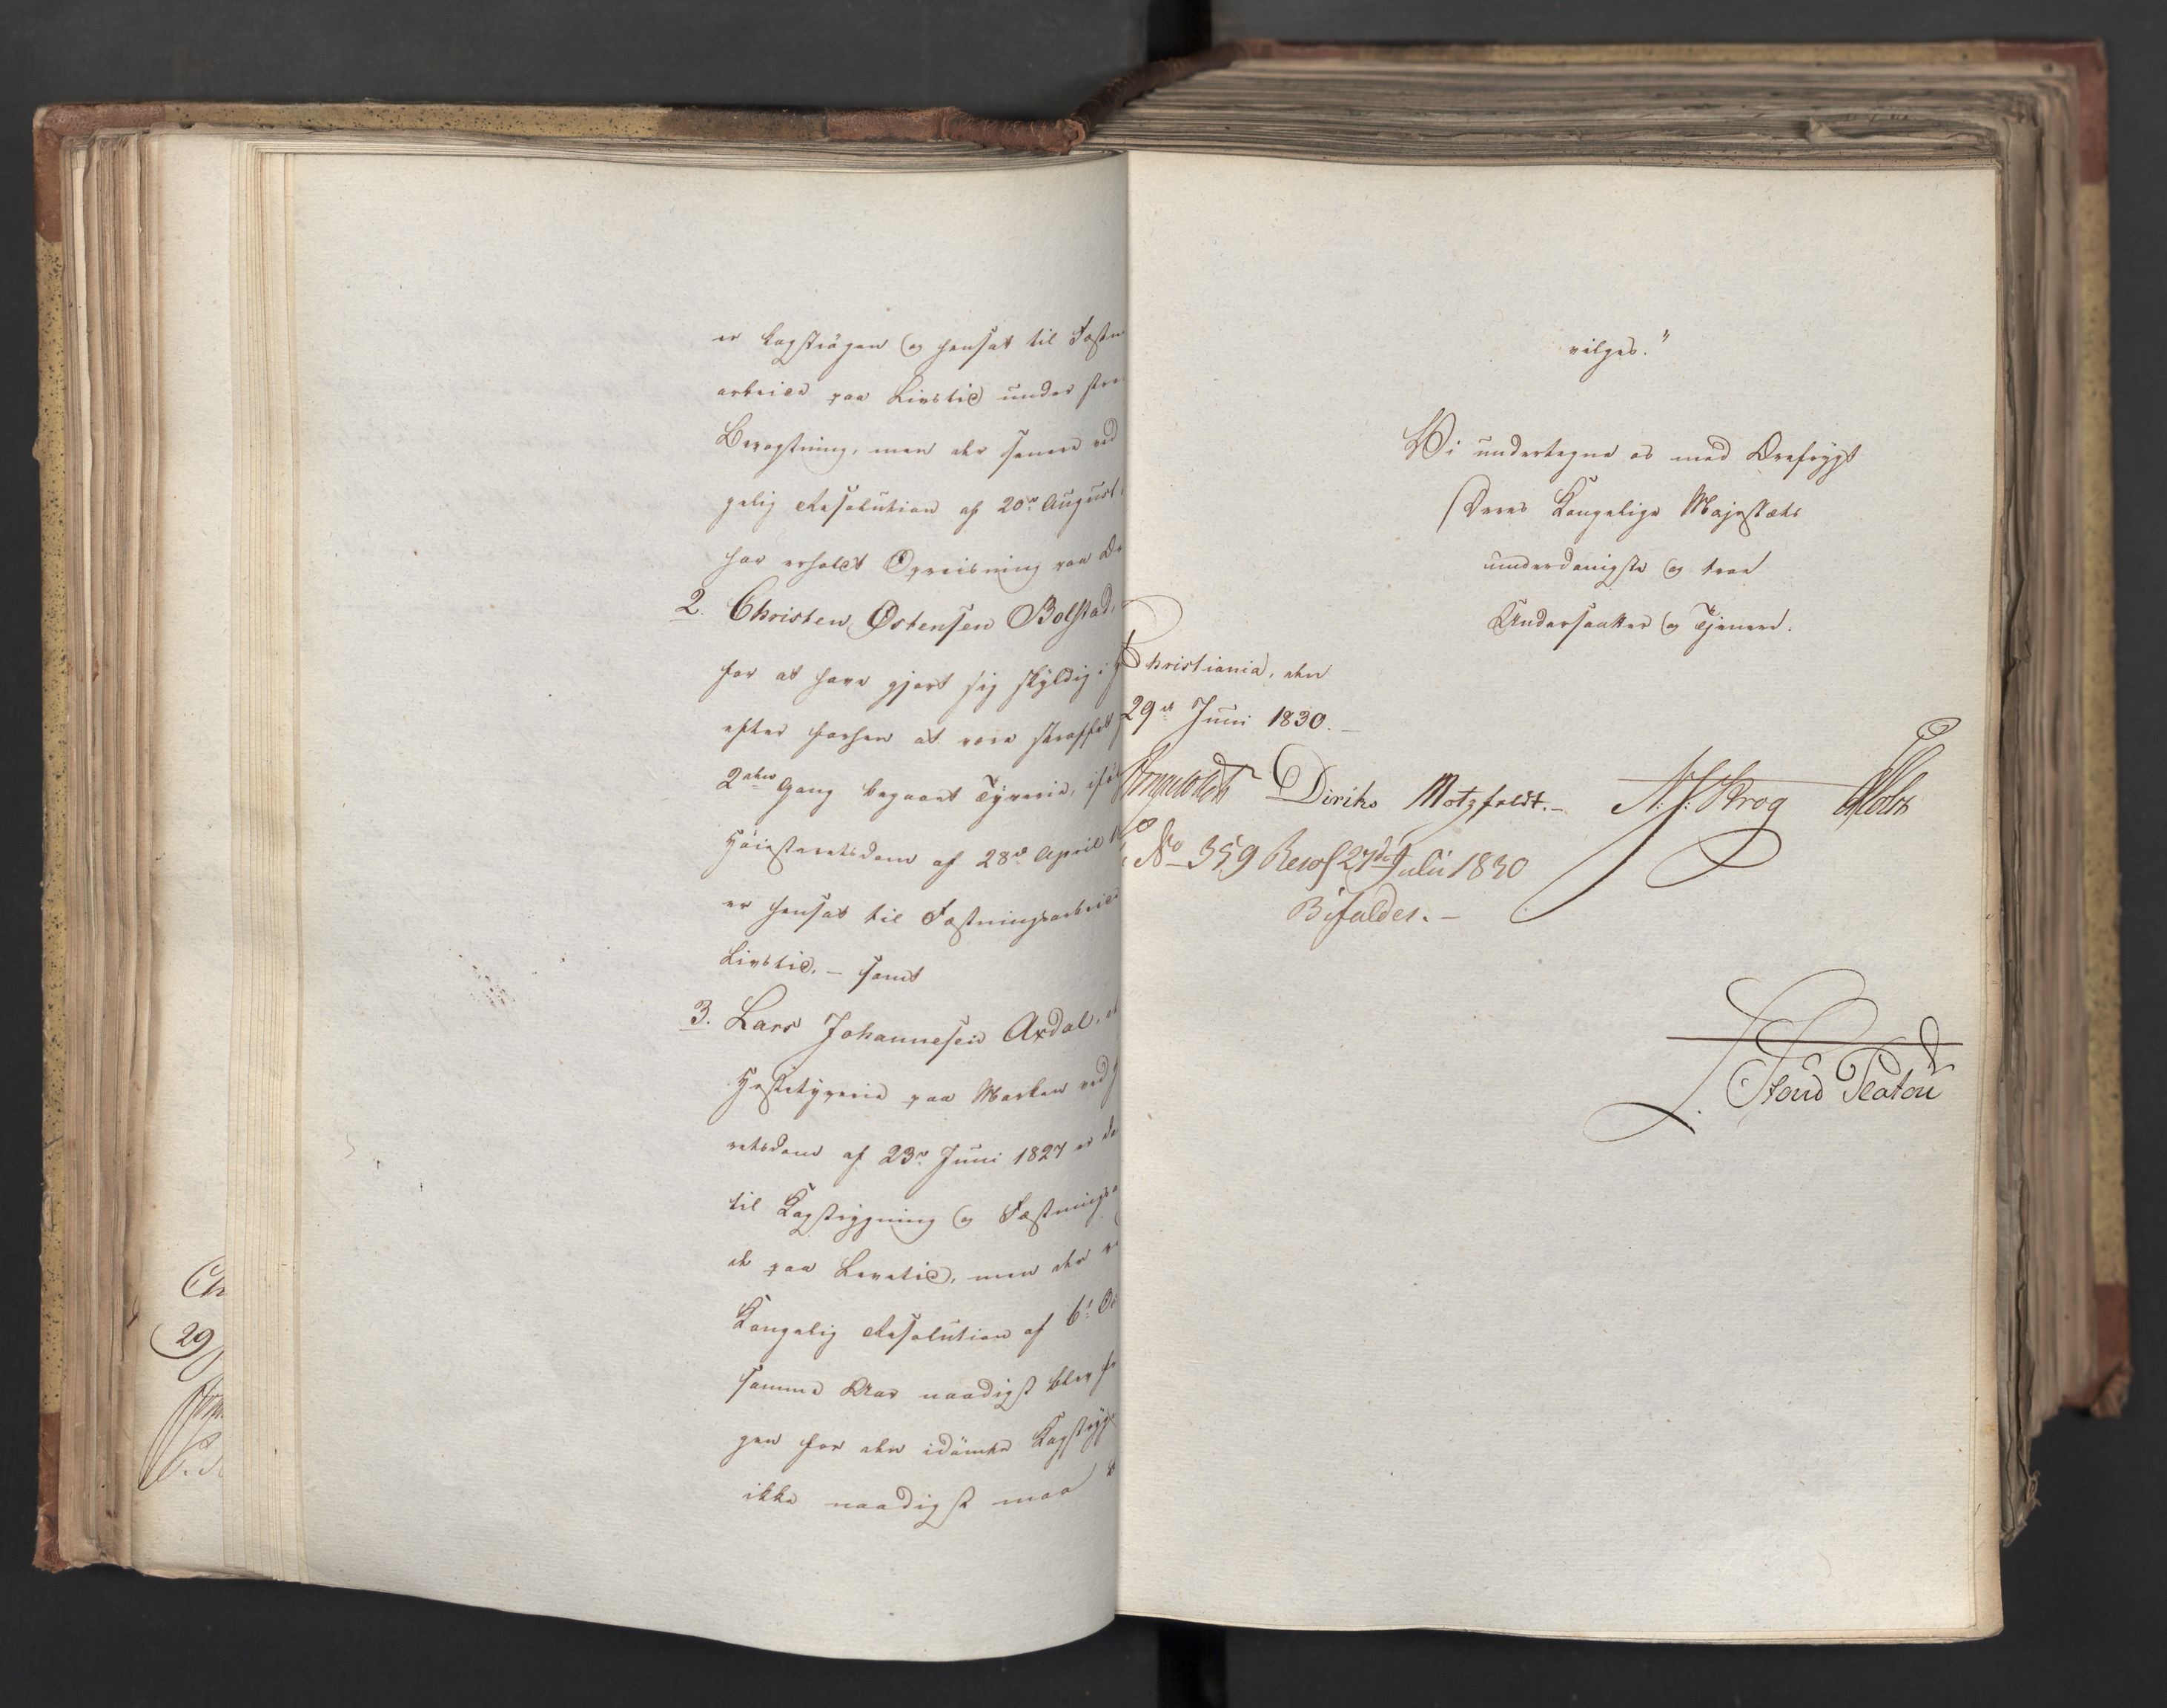 er kagstrøgen og hensat til Fæstn
arbeide paa Livstid under
Bevogtning, men der senere ved
gelig Resolution af 20de August
har erholdt Opreisning paa
2. Christen Østensen Bolstad,
for at have gjort sig skyldig i
efter forhen at være straffet
2den Gang begaaet Tyverie,
Høiesteretsdom af 28de April
er hensat til Fæstningsarbeide
Livstid, – samt
3. Lars Johannesen Axdal,
Hestetyverie paa Marken ved
retsdom af 23de Juni 1827 er
til Kagstrygning og Fæstnings
de paa Livstid, men der
Kongelig Resolution af 6te
samme Aar naadigst blev
gen for den idømte Kagstryg
ikke naadigst maa
Ch
29
vilges."
Vi undertegne os med Ærefrygt
Deres Kongelige Majestæts
underdanigste og troe
Undersaatter og Tjenere.
Christiania, den
29de Juni 1830. –
Diriks Motzfeldt. – N. J. Krog
No 359 Resol 27de Julii 1830
Bifaldes. –